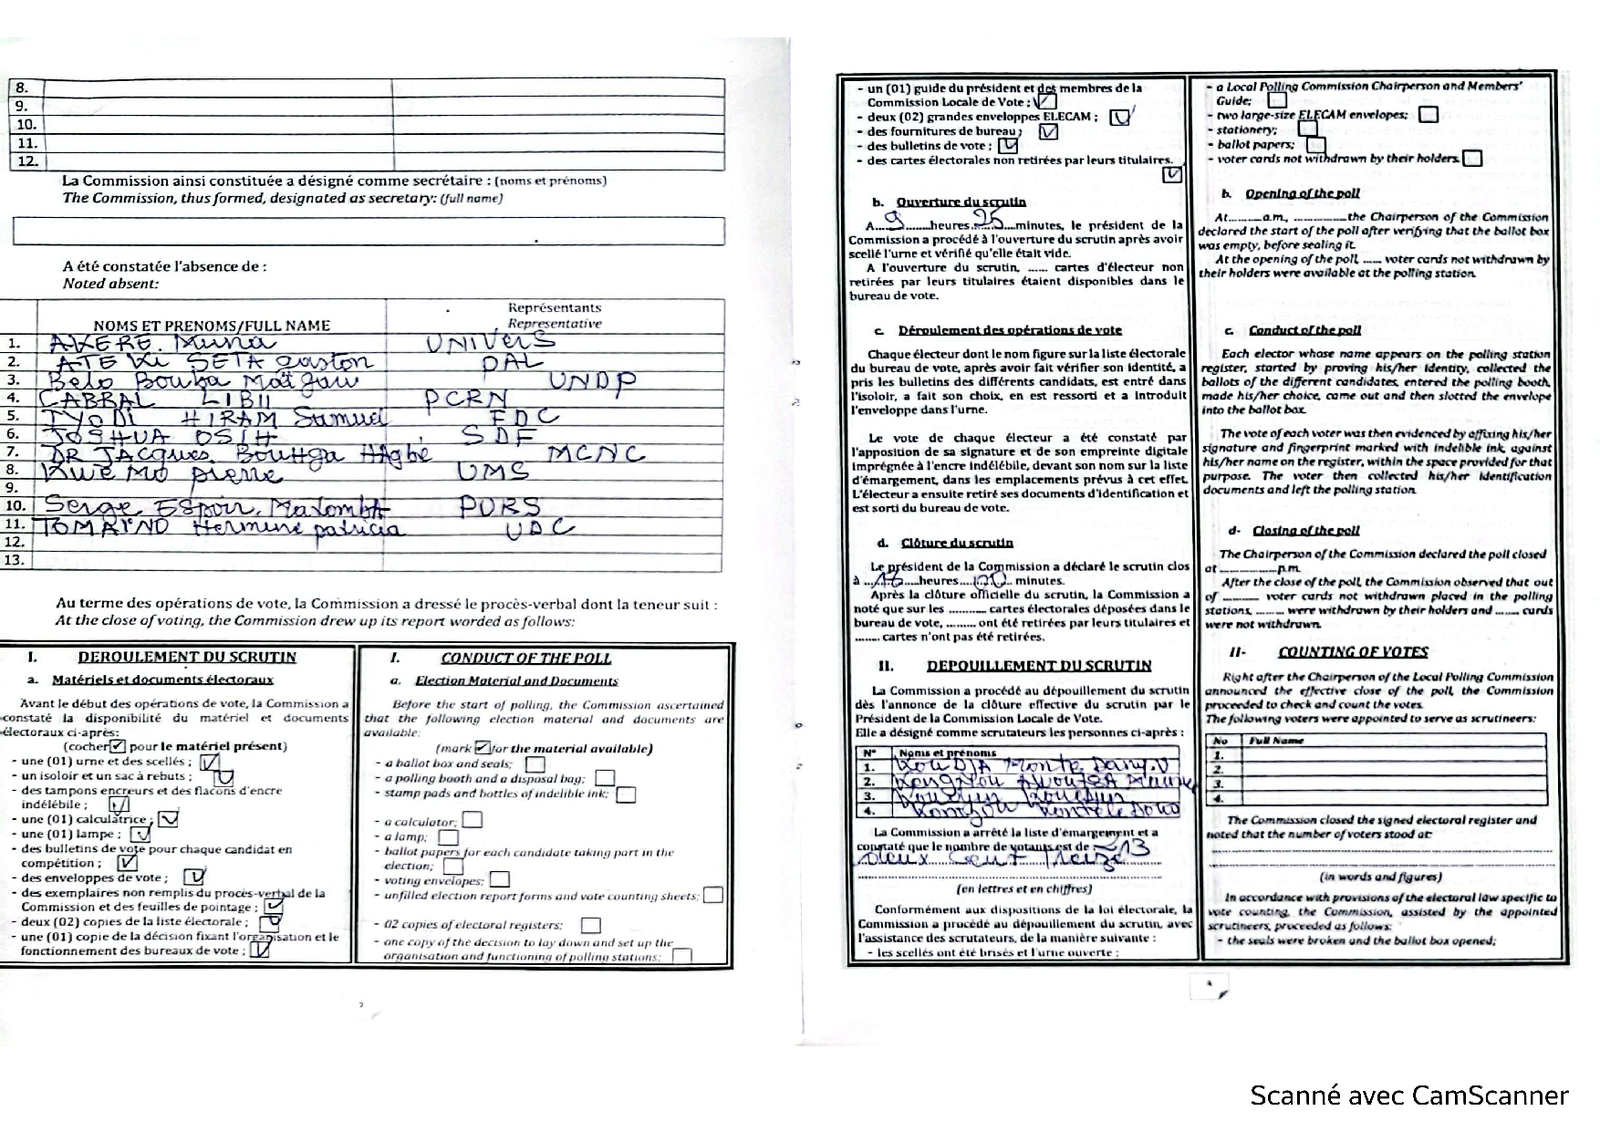 8.
9.
10.
11.
12.
La Commission ainsi constituée a désigné comme secrétaire : (noms et prénoms)
The Commission, thus formed, designated as secretary: (full name)
A été constatée l'absence de :
Noted absent:
NOMS ET PRENOMS/FULL NAME
Représentants
Representative
1. AKERE. Muna UNIVERS
2. ATEKI SETA Gaston PAL
3. Belo Bouba Maïgari UNDP
4. CABRAL LIBII PCRN
5. TYODI HIRAM Samuel FDC
6. JOSHUA OSIH SDF
7. DR JACques BouHga Hagbe MCNC
8. KWEMO pierre UMS
9.
10. Serge ESPOIR. Matomba PURS
11. TOMAINO Hermine patricia UDC
12.
13.
Au terme des opérations de vote, la Commission a dressé le procès-verbal dont la teneur suit :
At the close of voting, the Commission drew up its report worded as follows:
I. DEROULEMENT DU SCRUTIN
a. Matériels et documents électoraux
Avant le début des opérations de vote, la Commission a
constaté la disponibilité du matériel et documents
électoraux ci-après:
(cocher pour le matériel présent)
- une (01) urne et des scellés ;
- un isoloir et un sac à rebuts ;
- des tampons encreurs et des flacons d'encre
indélébile ;
- une (01) calculatrice ;
- une (01) lampe ;
- des bulletins de vote pour chaque candidat en
compétition ;
- des enveloppes de vote ;
- des exemplaires non remplis du procès-verbal de la
Commission et des feuilles de pointage ;
- deux (02) copies de la liste électorale ;
- une (01) copie de la décision fixant l'organisation et le
fonctionnement des bureaux de vote ;
I. CONDUCT OF THE POLL
a. Election Material and Documents
Before the start of polling, the Commission ascertained
that the following election material and documents are
available:
(mark for the material available)
- a ballot box and seals;
- a polling booth and a disposal bag;
- stamp pads and bottles of indelible ink;
- a calculator;
- a lamp;
- ballot papers for each candidate taking part in the
election;
- voting envelopes;
- unfilled election report forms and vote counting sheets;
- 02 copies of electoral registers;
- one copy of the decision to lay down and set up the
organisation and functioning of polling stations;
- un (01) guide du président et des membres de la
Commission Locale de Vote ;
- deux (02) grandes enveloppes ELECAM ;
- des fournitures de bureau ;
- des bulletins de vote ;
- des cartes électorales non retirées par leurs titulaires.
b. Ouverture du scrutin
A 9 heures 25 minutes, le président de la
Commission a procédé à l'ouverture du scrutin après avoir
scellé l'urne et vérifié qu'elle était vide.
A l'ouverture du scrutin, ...... cartes d'électeur non
retirées par leurs titulaires étaient disponibles dans le
bureau de vote.
c. Déroulement des opérations de vote
Chaque électeur dont le nom figure sur la liste électorale
du bureau de vote, après avoir fait vérifier son identité, a
pris les bulletins des différents candidats, est entré dans
l'isoloir, a fait son choix, en est ressorti et a introduit
l'enveloppe dans l'urne.
Le vote de chaque électeur a été constaté par
l'apposition de sa signature et de son empreinte digitale
imprégnée à l'encre indélébile, devant son nom sur la liste
d'émargement, dans les emplacements prévus à cet effet.
L'électeur a ensuite retiré ses documents d'identification et
est sorti du bureau de vote.
d. Clôture du scrutin
Le président de la Commission a déclaré le scrutin clos
à 18 heures 00 minutes.
Après la clôture officielle du scrutin, la Commission a
noté que sur les .......... cartes électorales déposées dans le
bureau de vote, ......... ont été retirées par leurs titulaires et
....... cartes n'ont pas été retirées.
II. DEPOUILLEMENT DU SCRUTIN
La Commission a procédé au dépouillement du scrutin
dès l'annonce de la clôture effective du scrutin par le
Président de la Commission Locale de Vote.
Elle a désigné comme scrutateurs les personnes ci-après :
N° Noms et prénoms
1. KouDJA
2.
3.
4.
La Commission a arrêté la liste d'émargement et a
constaté que le nombre de votants est de 213
Deux Cent Treize
(en lettres et en chiffres)
Conformément aux dispositions de la loi électorale, la
Commission a procédé au dépouillement du scrutin, avec
l'assistance des scrutateurs, de la manière suivante :
- les scellés ont été brisés et l'urne ouverte ;
- a Local Polling Commission Chairperson and Members'
Guide;
- two large-size ELECAM envelopes;
- stationery;
- ballot papers;
- voter cards not withdrawn by their holders.
b. Opening of the poll
At..........a.m., ...............the Chairperson of the Commission
declared the start of the poll after verifying that the ballot box
was empty, before sealing it.
At the opening of the poll, ...... voter cards not withdrawn by
their holders were available at the polling station.
c. Conduct of the poll
Each elector whose name appears on the polling station
register, started by proving his/her identity, collected the
ballots of the different candidates, entered the polling booth,
made his/her choice, came out and then slotted the envelope
into the ballot box.
The vote of each voter was then evidenced by affixing his/her
signature and fingerprint marked with indelible ink, against
his/her name on the register, within the space provided for that
purpose. The voter then collected his/her identification
documents and left the polling station.
d- Closing of the poll
The Chairperson of the Commission declared the poll closed
at ...............p.m.
After the close of the poll, the Commission observed that out
of ......... voter cards not withdrawn placed in the polling
stations, ........ were withdrawn by their holders and ....... cards
were not withdrawn.
II- COUNTING OF VOTES
Right after the Chairperson of the Local Polling Commission
announced the effective close of the poll, the Commission
proceeded to check and count the votes.
The following voters were appointed to serve as scrutineers:
No Full Name
1.
2.
3.
4.
The Commission closed the signed electoral register and
noted that the number of voters stood at:
(in words and figures)
In accordance with provisions of the electoral law specific to
vote counting, the Commission, assisted by the appointed
scrutineers, proceeded as follows:
- the seals were broken and the ballot box opened;
Scanné avec CamScanner